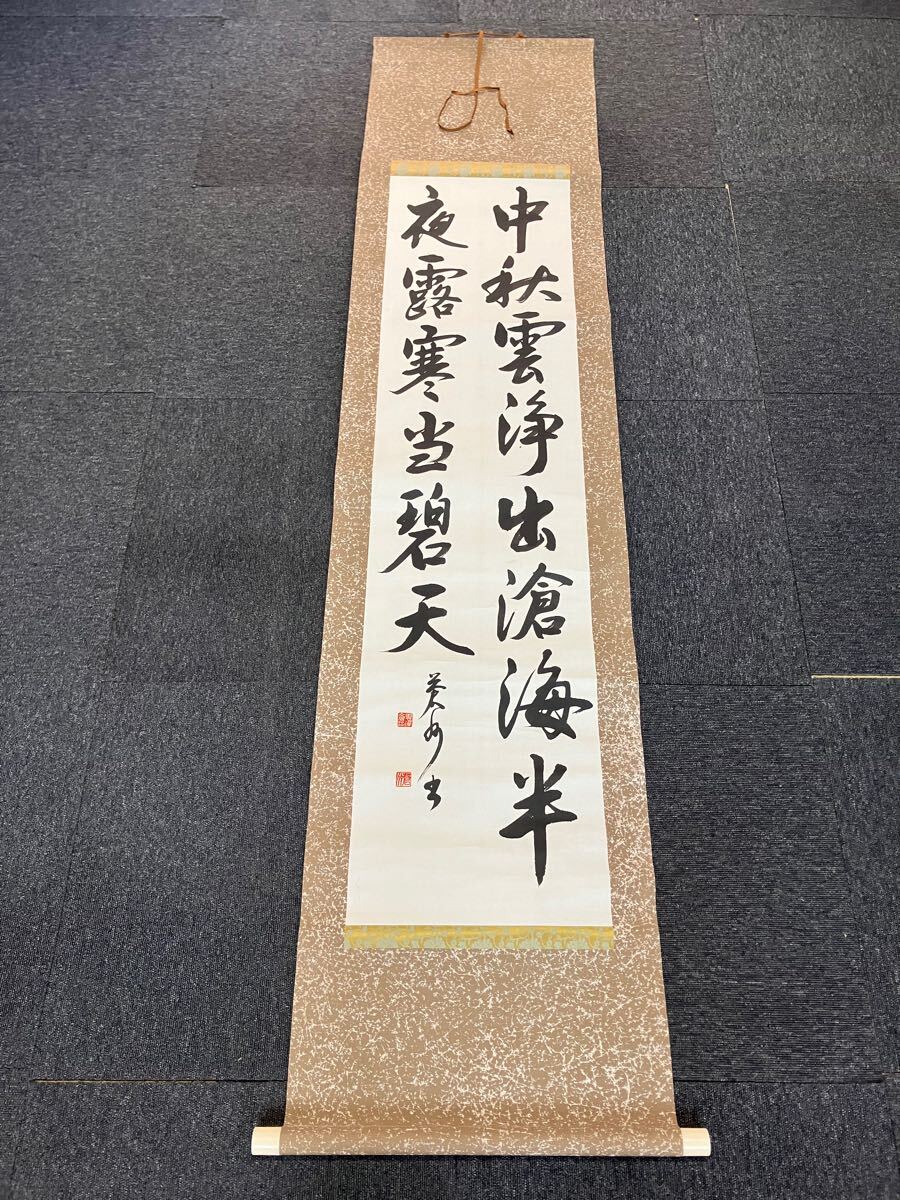 中秋雲浄出滄海半
夜露寒当碧天
書